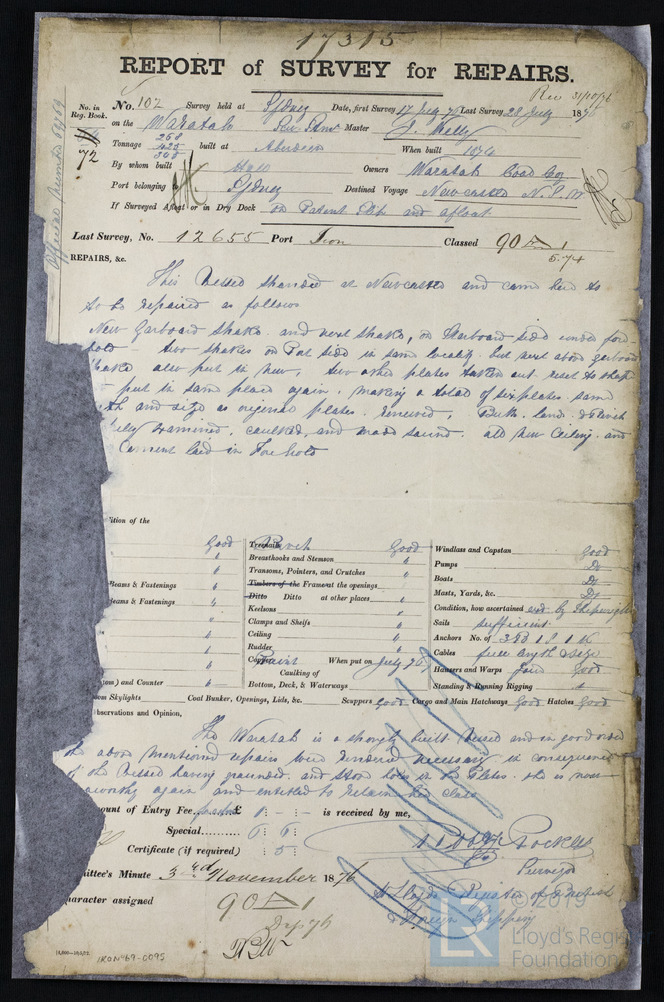 17315
REPORT of SURVEY for REPAIRS.
Rec 31/10/76
No. in Reg. Book.
No. 102 Survey held at Sydney Date, first Survey 17 July 76 Last Survey 28 July 1876
on the Waratah Master J. Kelly
72
Tonnage 268 425 built at Aberdeen When built 1874
By whom built Owners Waratah Coal Coy
Port belonging Sydney Destined Voyage Newcastle N.S.W.
If Surveyed Afloat or in Dry Dock on Patent Slip and afloat
Last Survey, No. 12655 Port Iron Classed 90 A 1
5.74
REPAIRS, &c.
This Vessel stranded at Newcastle and came here to
to be repaired as follows
New Garboard Strake and next strake, on Starboard side under fore
hold - two strakes on Port side in same locality but next above garboard
strake also put in new, two other plates taken out reset to shape
put in same place again, making a total of six plates same
and size as original plates renewed,
examined, caulked, and made sound. all new Ceiling and
Cement laid in Fore hold
ition of the
Good
Treenails Rivets Good
Breasthooks and Stemson "
Transoms, Pointers, and Crutches "
Beams & Fastenings "
Timbers of the Frame at the openings "
Beams & Fastenings "
Ditto Ditto at other places "
Keelsons "
Clamps and Shelfs "
Ceiling "
Rudder "
Copper Paint When put on July 76
Caulking of
Bottom, Deck, & Waterways
and Counter "
Windlass and Capstan Good
Pumps Do
Boats Do
Masts, Yards, &c. Do
Condition, how ascertained by Shipwright
Sails sufficient
Anchors No. of 3 B 1 S 1 K
Cables full length & size
Hawsers and Warps four Good
Standing & Running Rigging "
om Skylights Coal Bunker, Openings, Lids, &c. Scuppers Good Cargo and Main Hatchways Good Hatches Good
bservations and Opinion,
The Waratah is a strongly built Vessel and in good order
the above mentioned repairs were rendered necessary in consequence
of the Vessel having grounded, and stove holes in the Plates. she is now
seaworthy again and entitled to retain her class
ount of Entry Fee £ 1 - - is received by me,
Special
Certificate (if required) : 5 :
Surveyor
to Lloyds Register of British
& Foreign Shipping
mittee's Minute 3rd November 1876
haracter assigned 90 A 1
Sep 76
IRON 69-0095
© 2019
LR
Lloyd's Register
Foundation